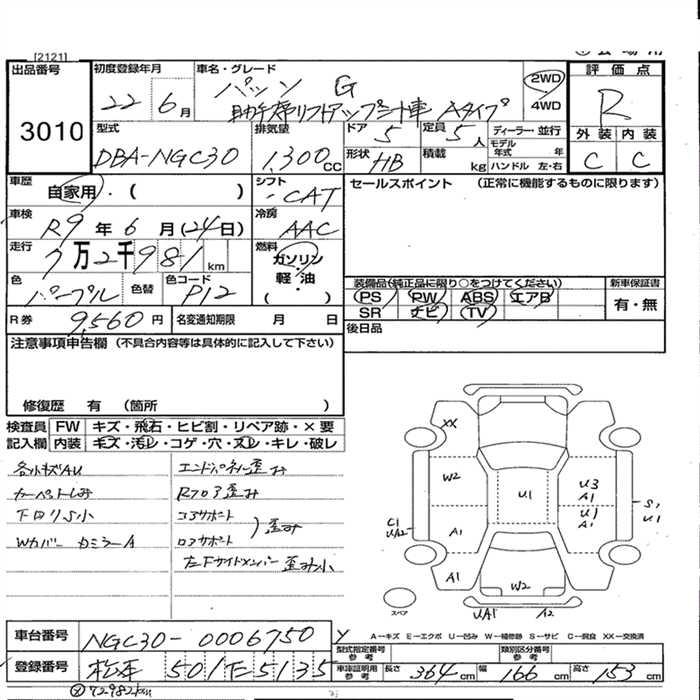 [2121]
出品番号 初度登録年月 車名・グレード 評価点
3010
22年 6月
パッソ G
助手席リフトアップシート車 Aタイプ
2WD
4WD
R
型式 排気量 ドア 定員 ディーラー・並行 外装 内装
DBA-NGC30 1,300cc 5 5人
モデル年式 年
形状 HB 積載 kg ハンドル 左・右 C C
車歴 自家用・( ) シフト CAT
セールスポイント (正常に機能するものに限ります)
車検 R9年 6月(24日) 冷房 AAC
走行 7万2千981km 燃料 ガソリン
軽・油
( ・ )
色 パープル 色替 色コード P12
装備品(純正品に限り○をつけてください) 新車保証書
PS PW ABS エアB 有・無
SR ナビ TV
R券 9,560円 名変通知期限 月 日
後日品
注意事項申告欄(不具合内容等は具体的に記入して下さい)
修復歴 有 (箇所 )
検査員 FW キズ・飛石・ヒビ割・リペア跡・×要
記入欄 内装 キズ・汚レ・コゲ・穴・スレ・キレ・破レ
各小キズAU エンドパネル歪み
カーペットしみ Rフロア歪み
下回りS小 コアサポート
歪み
Wカバー カミラーA ロアサポート
左Fサイドメンバー歪み小
XX
W2
U1
U3
A1
U1
A1
S1
U1
C1
UA2
A1
A1
W2
スペア
UA1 A2
A―キズ E―エクボ U―凹み W―補修跡 S―サビ C―腐食 XX―交換済
車台番号 NGC30-0006750
型式指定番号 参考 類別区分番号 参考
登録番号 松本 501 モ 5135
車庫証明用 参考 長さ 364cm 幅 166cm 高さ 153cm
72982km